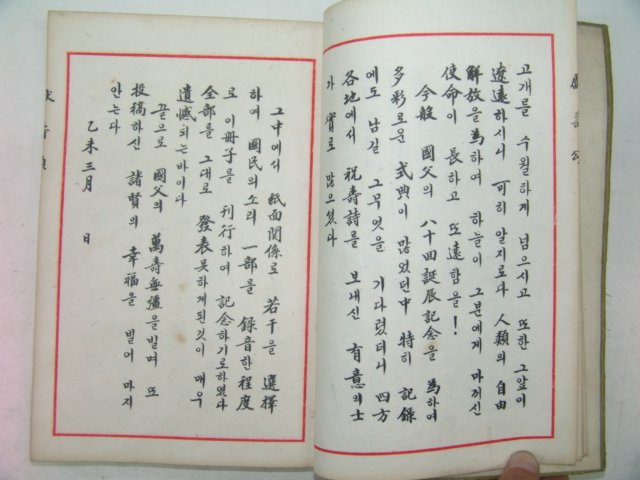 고개를 수월하게 넘으시고 또한 그앞이
遼遠하시서니 可히 알지로다 人類의 自由
解放을 爲하여 하늘이 그분에게 마끼신
使命이 長하고 또 遠함을!
今般 國父의 八十回誕辰記念을 爲하여
多彩로운 式典이 많었던中 特히 記錄
에도 남길 그무엇을 기다렸더서 四方
各地에서 祝壽詩를 보내신 有意의士
가 實로 많으셨다
그中에서 紙面関係로 若干을 選擇
하여 國民의소리 一部를 錄音한程度
로 이冊子를 刊行하여 記念하기로하였다
全部를 그대로 發表못하게된것이 매우
遺憾되는바이다
끝으로 國父의 萬壽無疆을빌며 또
投稿하신 諸賢의 幸福을 빌어 마지
안는다
乙未三月 日